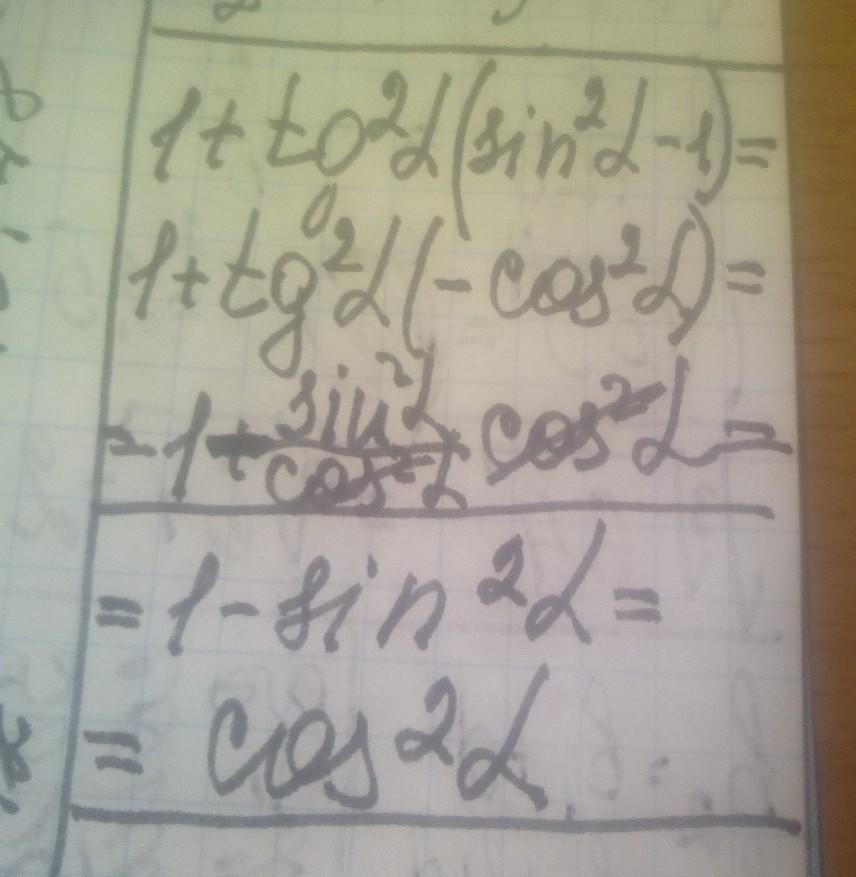 1+tg²α(sin²α-1)=
1+tg²α(-cos²α)=
=1-sin²α/cos²α cos²α=
=1-sin²α=
=cos²α